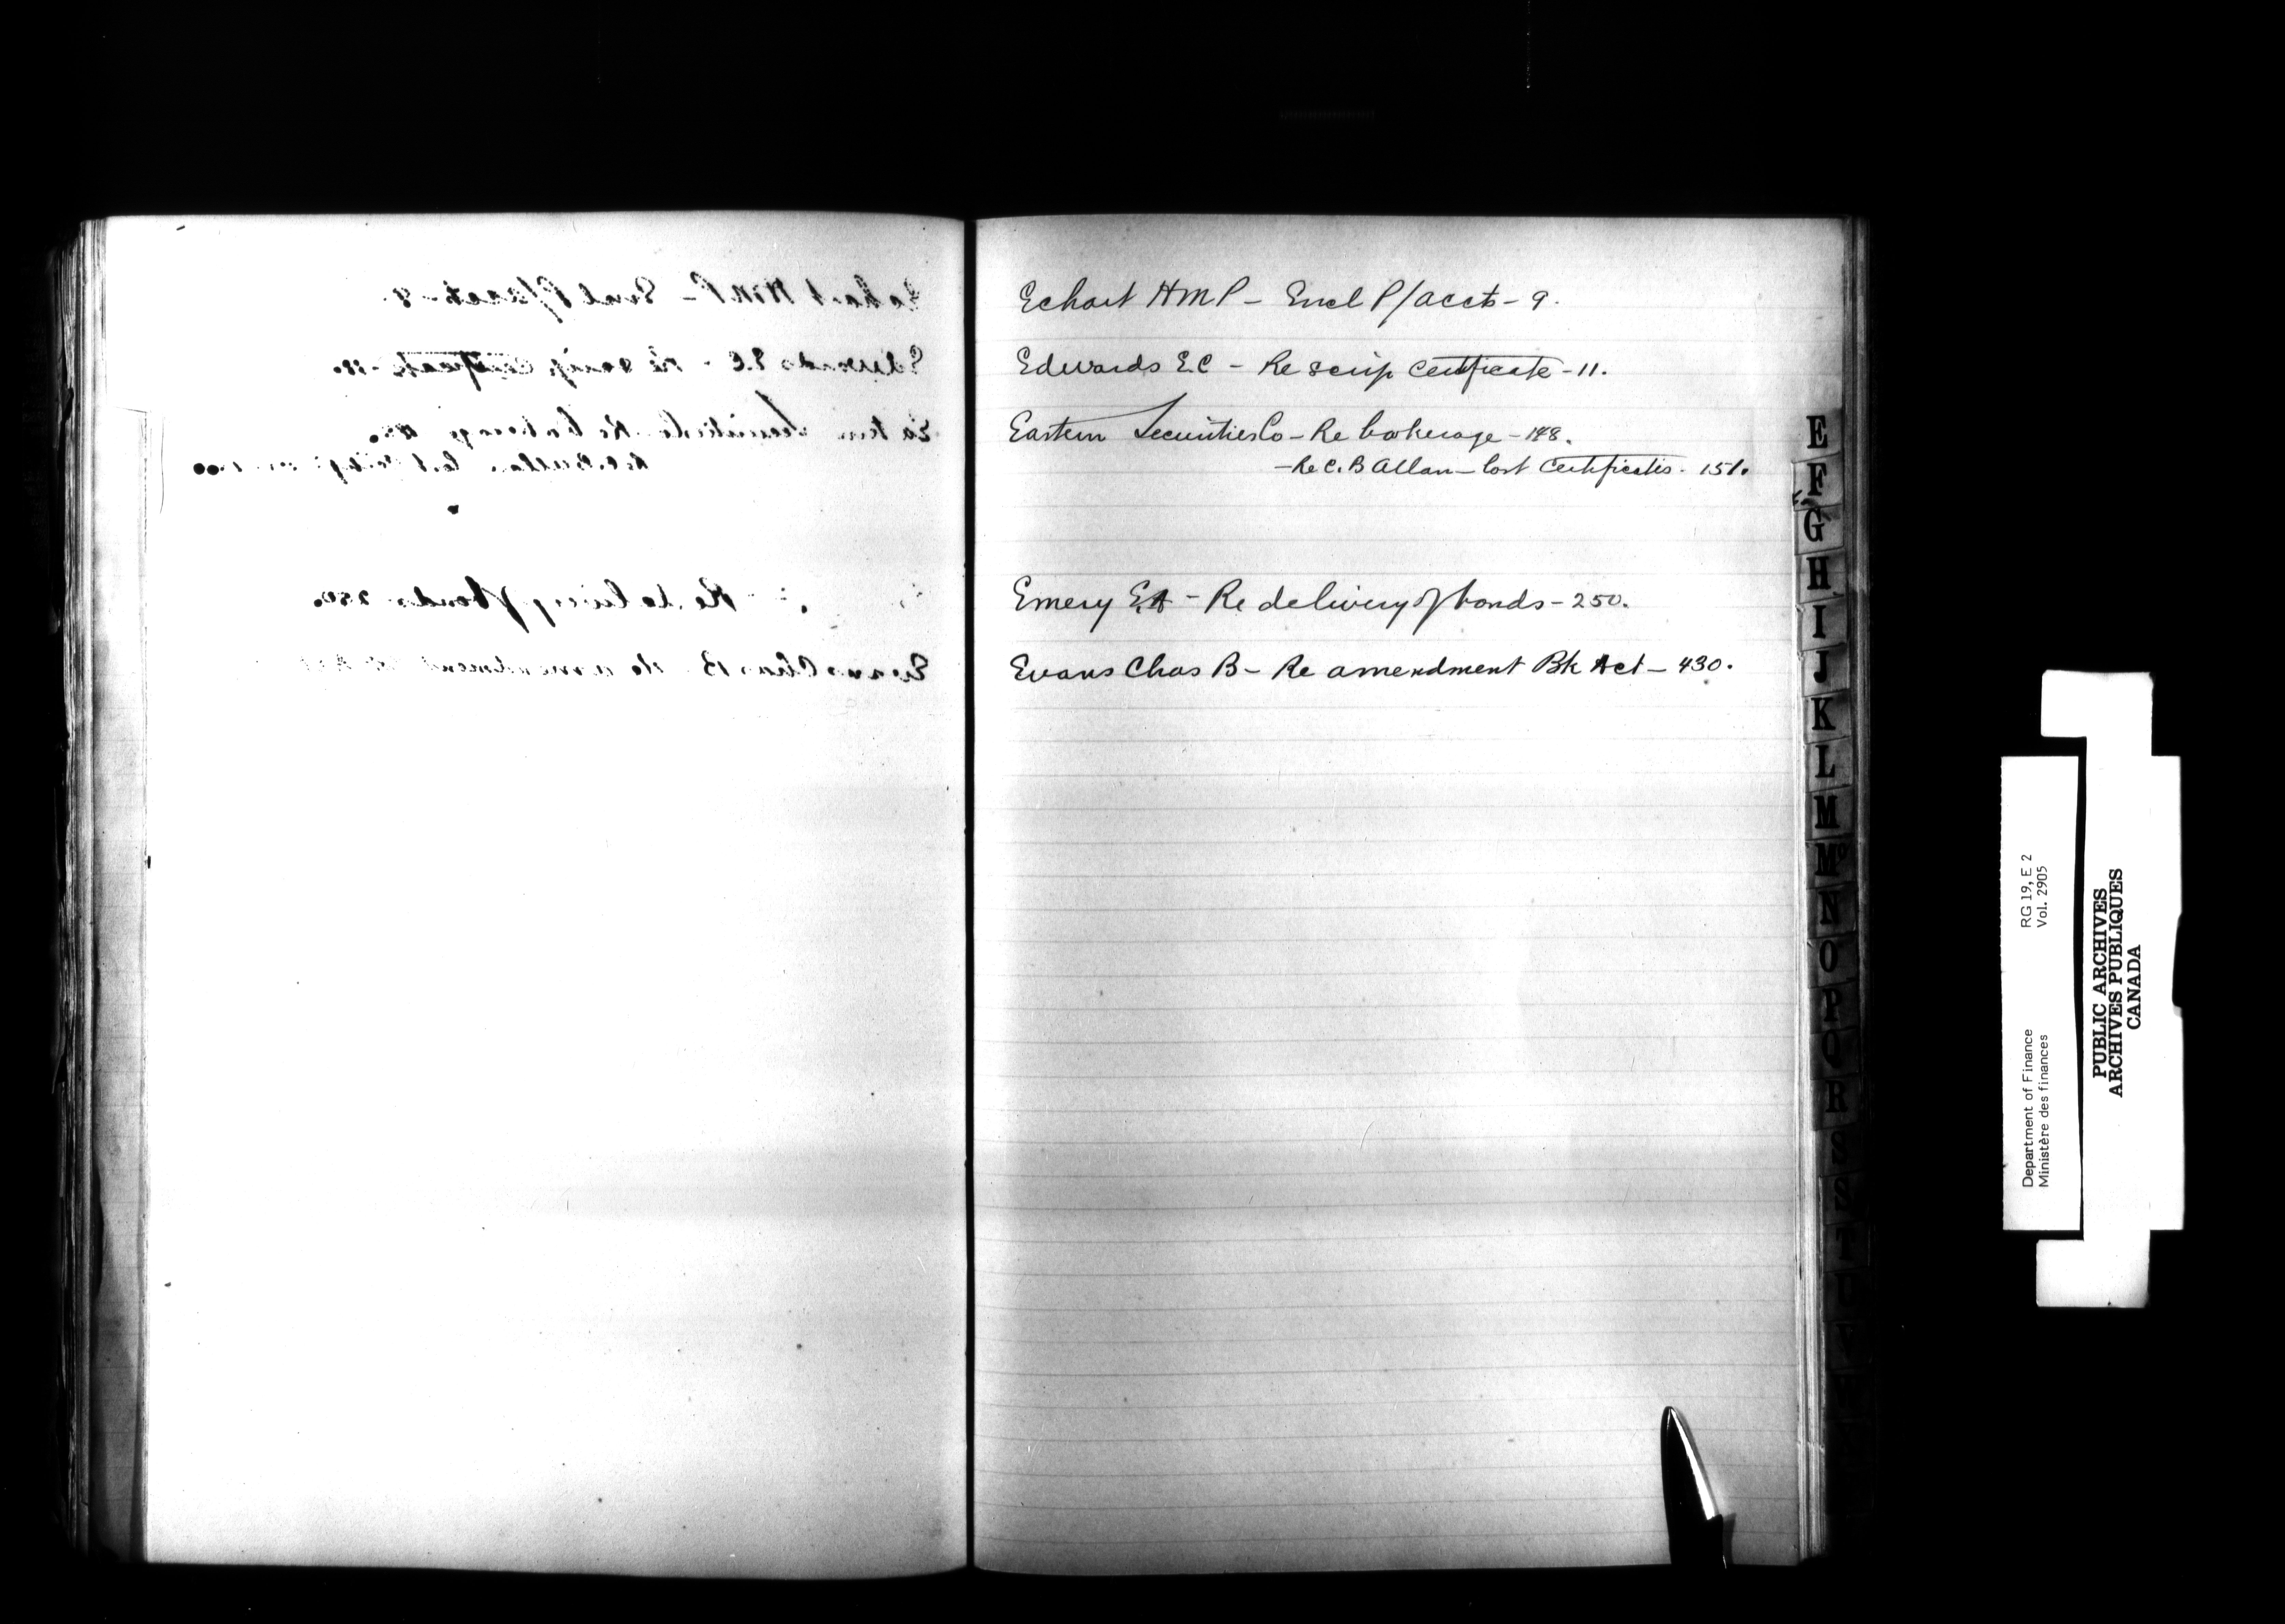 Echart H M P - Encl P/accts - 9.
Edwards E C - Re scrip certificate - 11.
Eastern Securities Co - Re brokerage - 148.
- Re C. B Allan - lost certificates - 151.
Emery E.A - Re delivery of bonds - 250.
Evans Chas B - Re amendment Bk Act - 430.
E
F
G
H
I
J
K
L
M
Mc
N
O
P
Q
R
S
T
U
V
RG 19, E 2
Vol. 2905
Department of Finance
Ministère des finances
PUBLIC ARCHIVES
ARCHIVES PUBLIQUES
CANADA